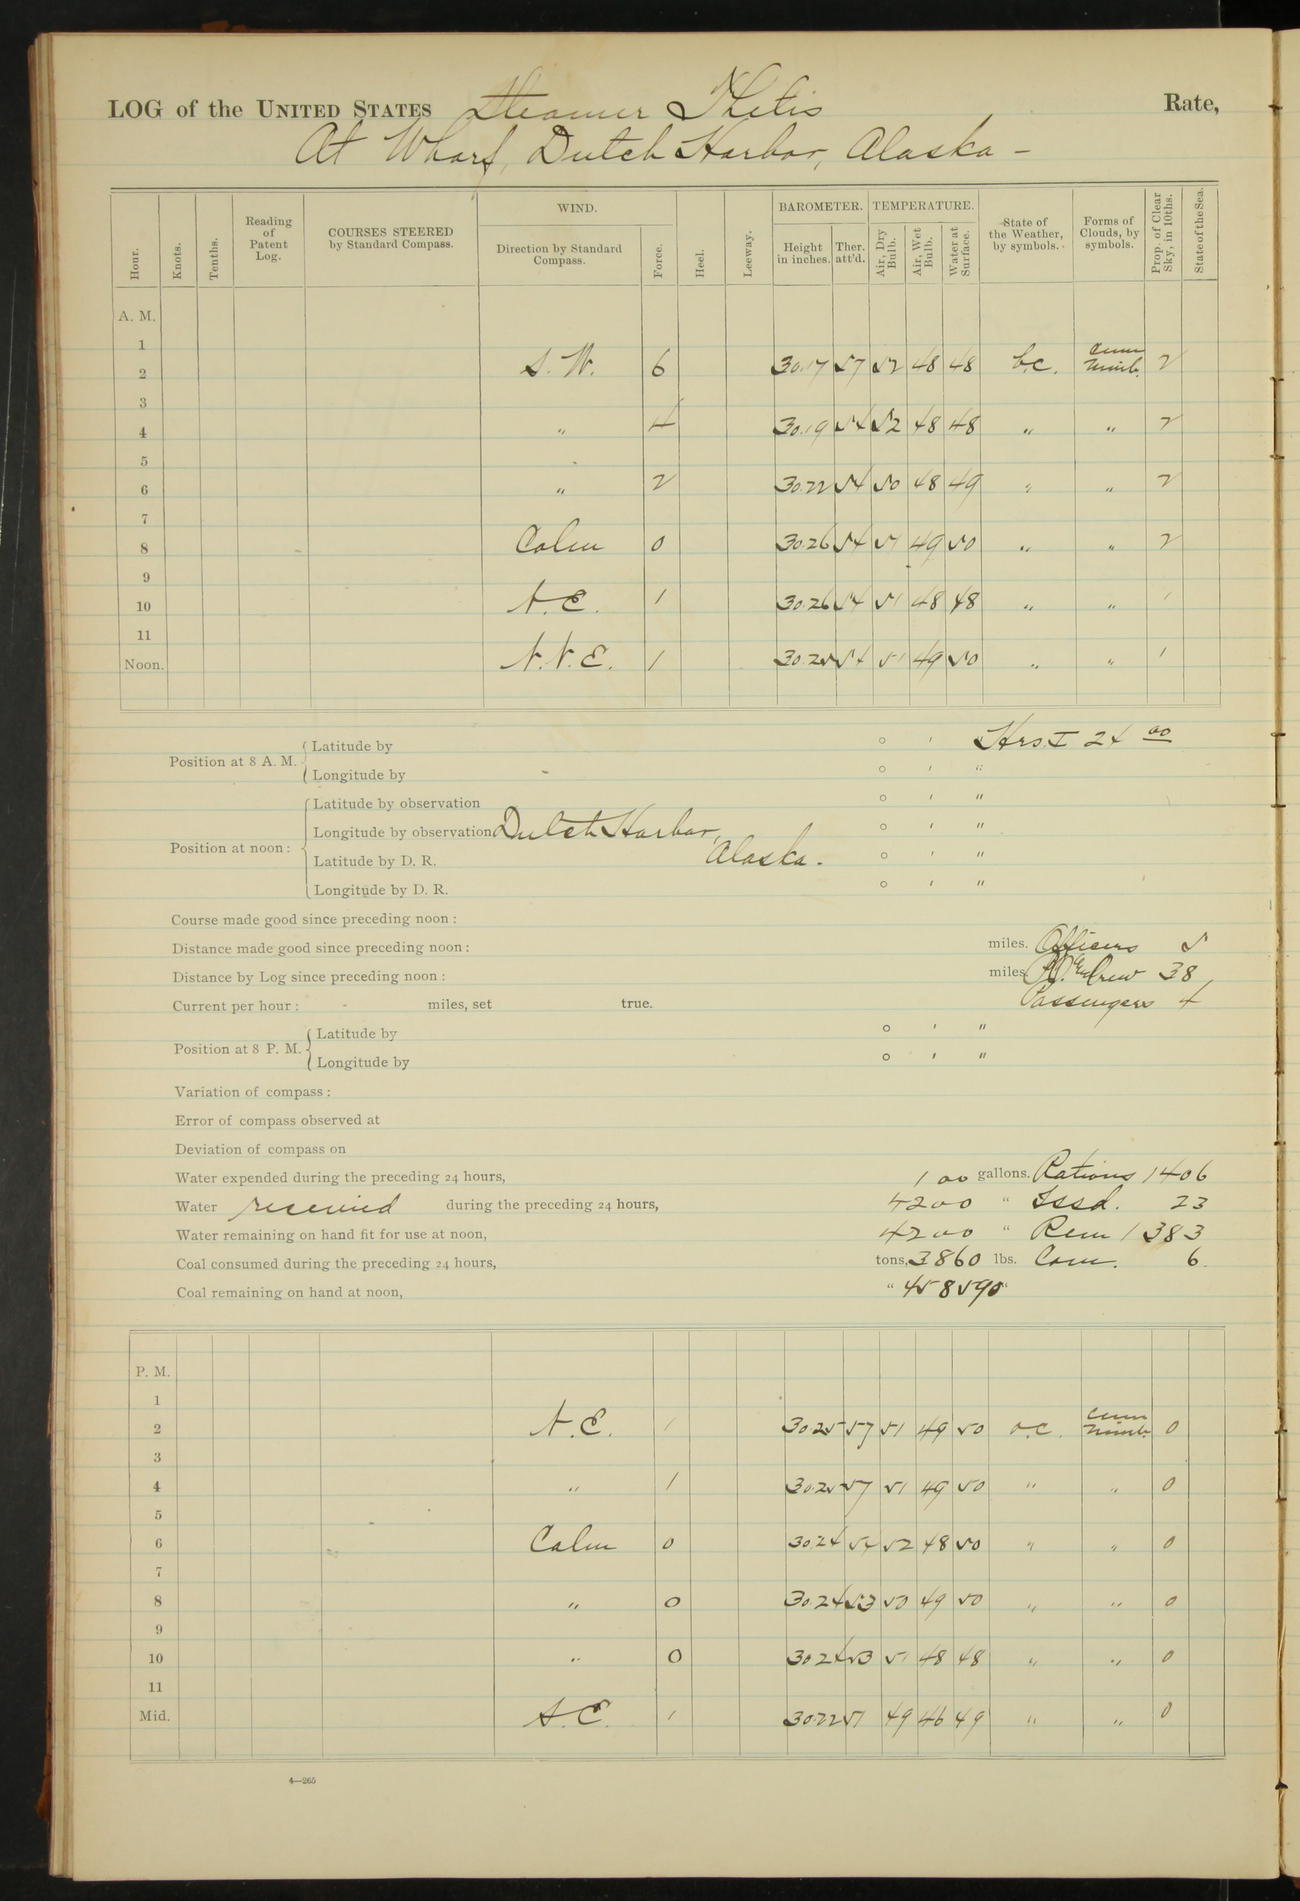 LOG of the UNITED STATES Steamer Thetis Rate,
At Wharf, Dutch Harbor, Alaska -
Hour. Knots. Tenths. Reading of Patent Log. COURSES STEERED by Standard Compass. WIND. Direction by Standard Compass. Force. Heel. Leeway. BAROMETER. Height in inches. Ther. att'd. TEMPERATURE. Air, Dry Bulb. Air, Wet Bulb. Water at Surface. State of the Weather, by symbols. Forms of Clouds, by symbols. Prop. of Clear Sky, in 10ths. State of the Sea.
A. M.
1
2 S. W. 6 30.17 57 52 48 48 b.c. Cum Nimb. 2
3
4 " 4 30.19 54 52 48 48 " " 2
5
6 " 2 30.22 54 50 48 49 " " 2
7
8 Calm 0 30.26 54 51 49 50 " " 2
9
10 N. E. 1 30.26 54 51 48 48 " " 1
11
Noon. N. N. E. 1 30.25 54 51 49 50 " " 1
Position at 8 A. M. Latitude by ° ' Hrs. I 24 00
Longitude by ° ' "
Position at noon: Latitude by observation ° ' "
Longitude by observation Dutch Harbor, ° ' "
Latitude by D. R. Alaska. ° ' "
Longitude by D. R. ° ' "
Course made good since preceding noon:
Distance made good since preceding noon: miles. Officers 5
Distance by Log since preceding noon: miles. Crew 38
Current per hour: miles, set true. Passengers 4
Position at 8 P. M. Latitude by ° ' "
Longitude by ° ' "
Variation of compass:
Error of compass observed at
Deviation of compass on
Water expended during the preceding 24 hours, 100 gallons. Rations 1406
Water received during the preceding 24 hours, 4200 " Issd. 23
Water remaining on hand fit for use at noon, 4200 " Rem 1383
Coal consumed during the preceding 24 hours, tons, 3860 lbs. Com. 6
Coal remaining on hand at noon, " 458590 "
P. M.
1
2 N. E. 1 30.25 57 51 49 50 o.c. Cum Nimb. 0
3
4 " 1 30.25 57 51 49 50 " " 0
5
6 Calm 0 30.24 54 52 48 50 " " 0
7
8 " 0 30.24 53 50 49 50 " " 0
9
10 " 0 30.24 53 51 48 48 " " 0
11
Mid. S. E. 1 30.22 51 49 46 49 " " 0
4—265